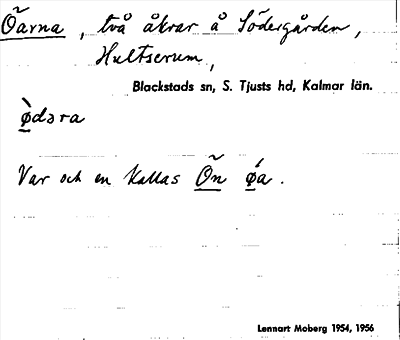 Õarna, två åkrar å Södergården,
Hultserum,
Blackstads sn, S. Tjusts hd, Kalmar län.
ø̀dɔra
Var och en kallas Õn ǿa.
Lennart Moberg 1954, 1956